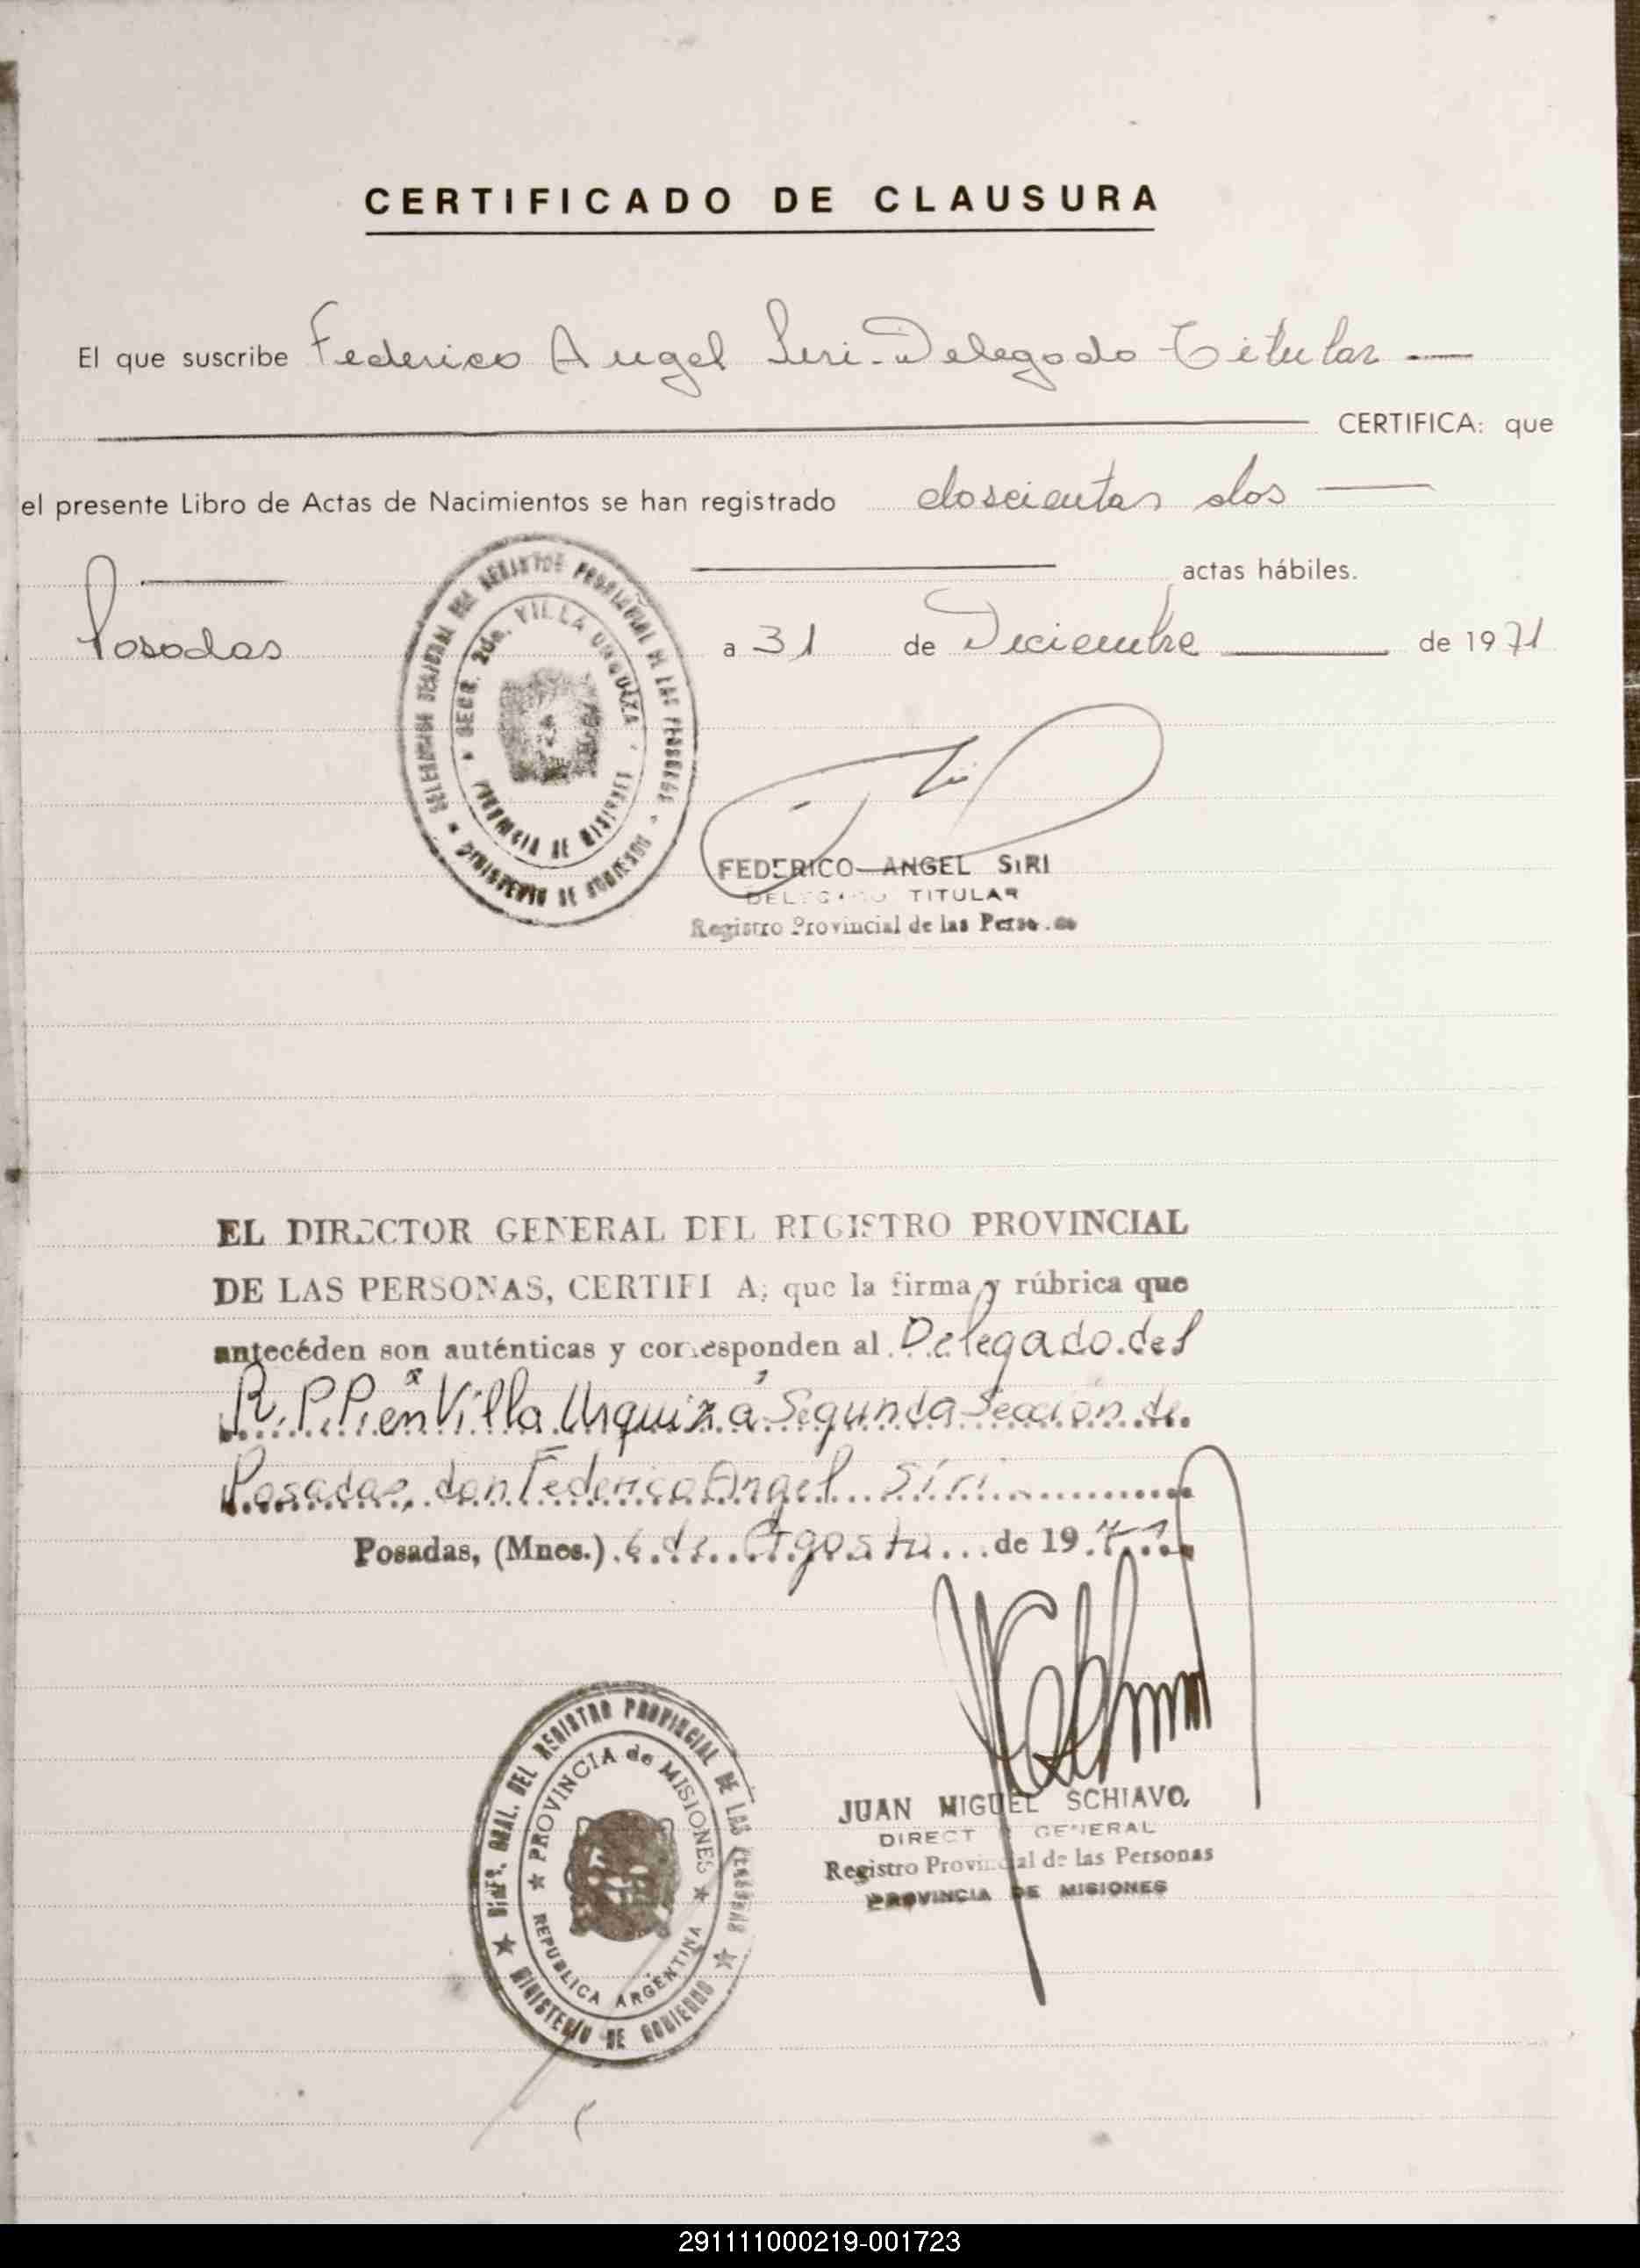 CERTIFICADO DE CLAUSURA
El que suscribe Federico Angel Siri - Delegado Titular
CERTIFICA: que
el presente Libro de Actas de Nacimientos se han registrado doscientas dos
actas hábiles.
Posadas a 31 de Diciembre de 1971
DELEGACION SECCIONAL DEL REGISTRO PROVINCIAL DE LAS PERSONAS
SECR. 2da. VILLA URQUIZA
PROVINCIA DE MISIONES
MINISTERIO DE GOBIERNO
FEDERICO ANGEL SIRI
DELEGADO TITULAR
Registro Provincial de las Personas
EL DIRECTOR GENERAL DEL REGISTRO PROVINCIAL
DE LAS PERSONAS, CERTIFI A; que la firma y rúbrica que
antecéden son auténticas y corresponden al Delegado del
R.P.P. en "Villa Urquiza" Segunda Sección de
Posadas, don Federico Angel Siri
Posadas, (Mnes.) 6 de Agosto de 19
DIREC. GRAL. DEL REGISTRO PROVINCIAL DE LAS PERSONAS
PROVINCIA de MISIONES
REPUBLICA ARGENTINA
MINISTERIO DE GOBIERNO
JUAN MIGUEL SCHIAVO
DIRECT R GENERAL
Registro Provincial de las Personas
PROVINCIA DE MISIONES
291111000219-001723